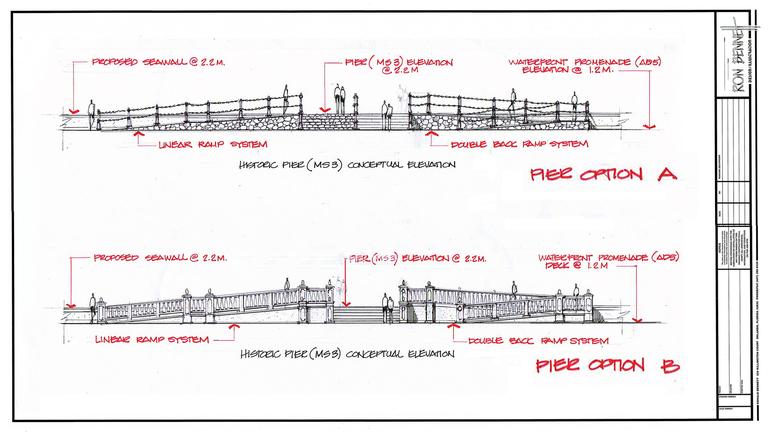 PROPOSED SEAWALL @ 2.2M.
PIER (MS3) ELEVATION
@ 2.2 M
WATERFRONT PROMENADE (AD5)
ELEVATION @ 1.2 M.
LINEAR RAMP SYSTEM
DOUBLE BACK RAMP SYSTEM
HISTORIC PIER (MS3) CONCEPTUAL ELEVATION
PIER OPTION A
PROPOSED SEAWALL @ 2.2M.
PIER (MS3) ELEVATION @ 2.2M.
WATERFRONT PROMENADE (AD5)
DECK @ 1.2 M
LINEAR RAMP SYSTEM
DOUBLE BACK RAMP SYSTEM
HISTORIC PIER (MS3) CONCEPTUAL ELEVATION
PIER OPTION B